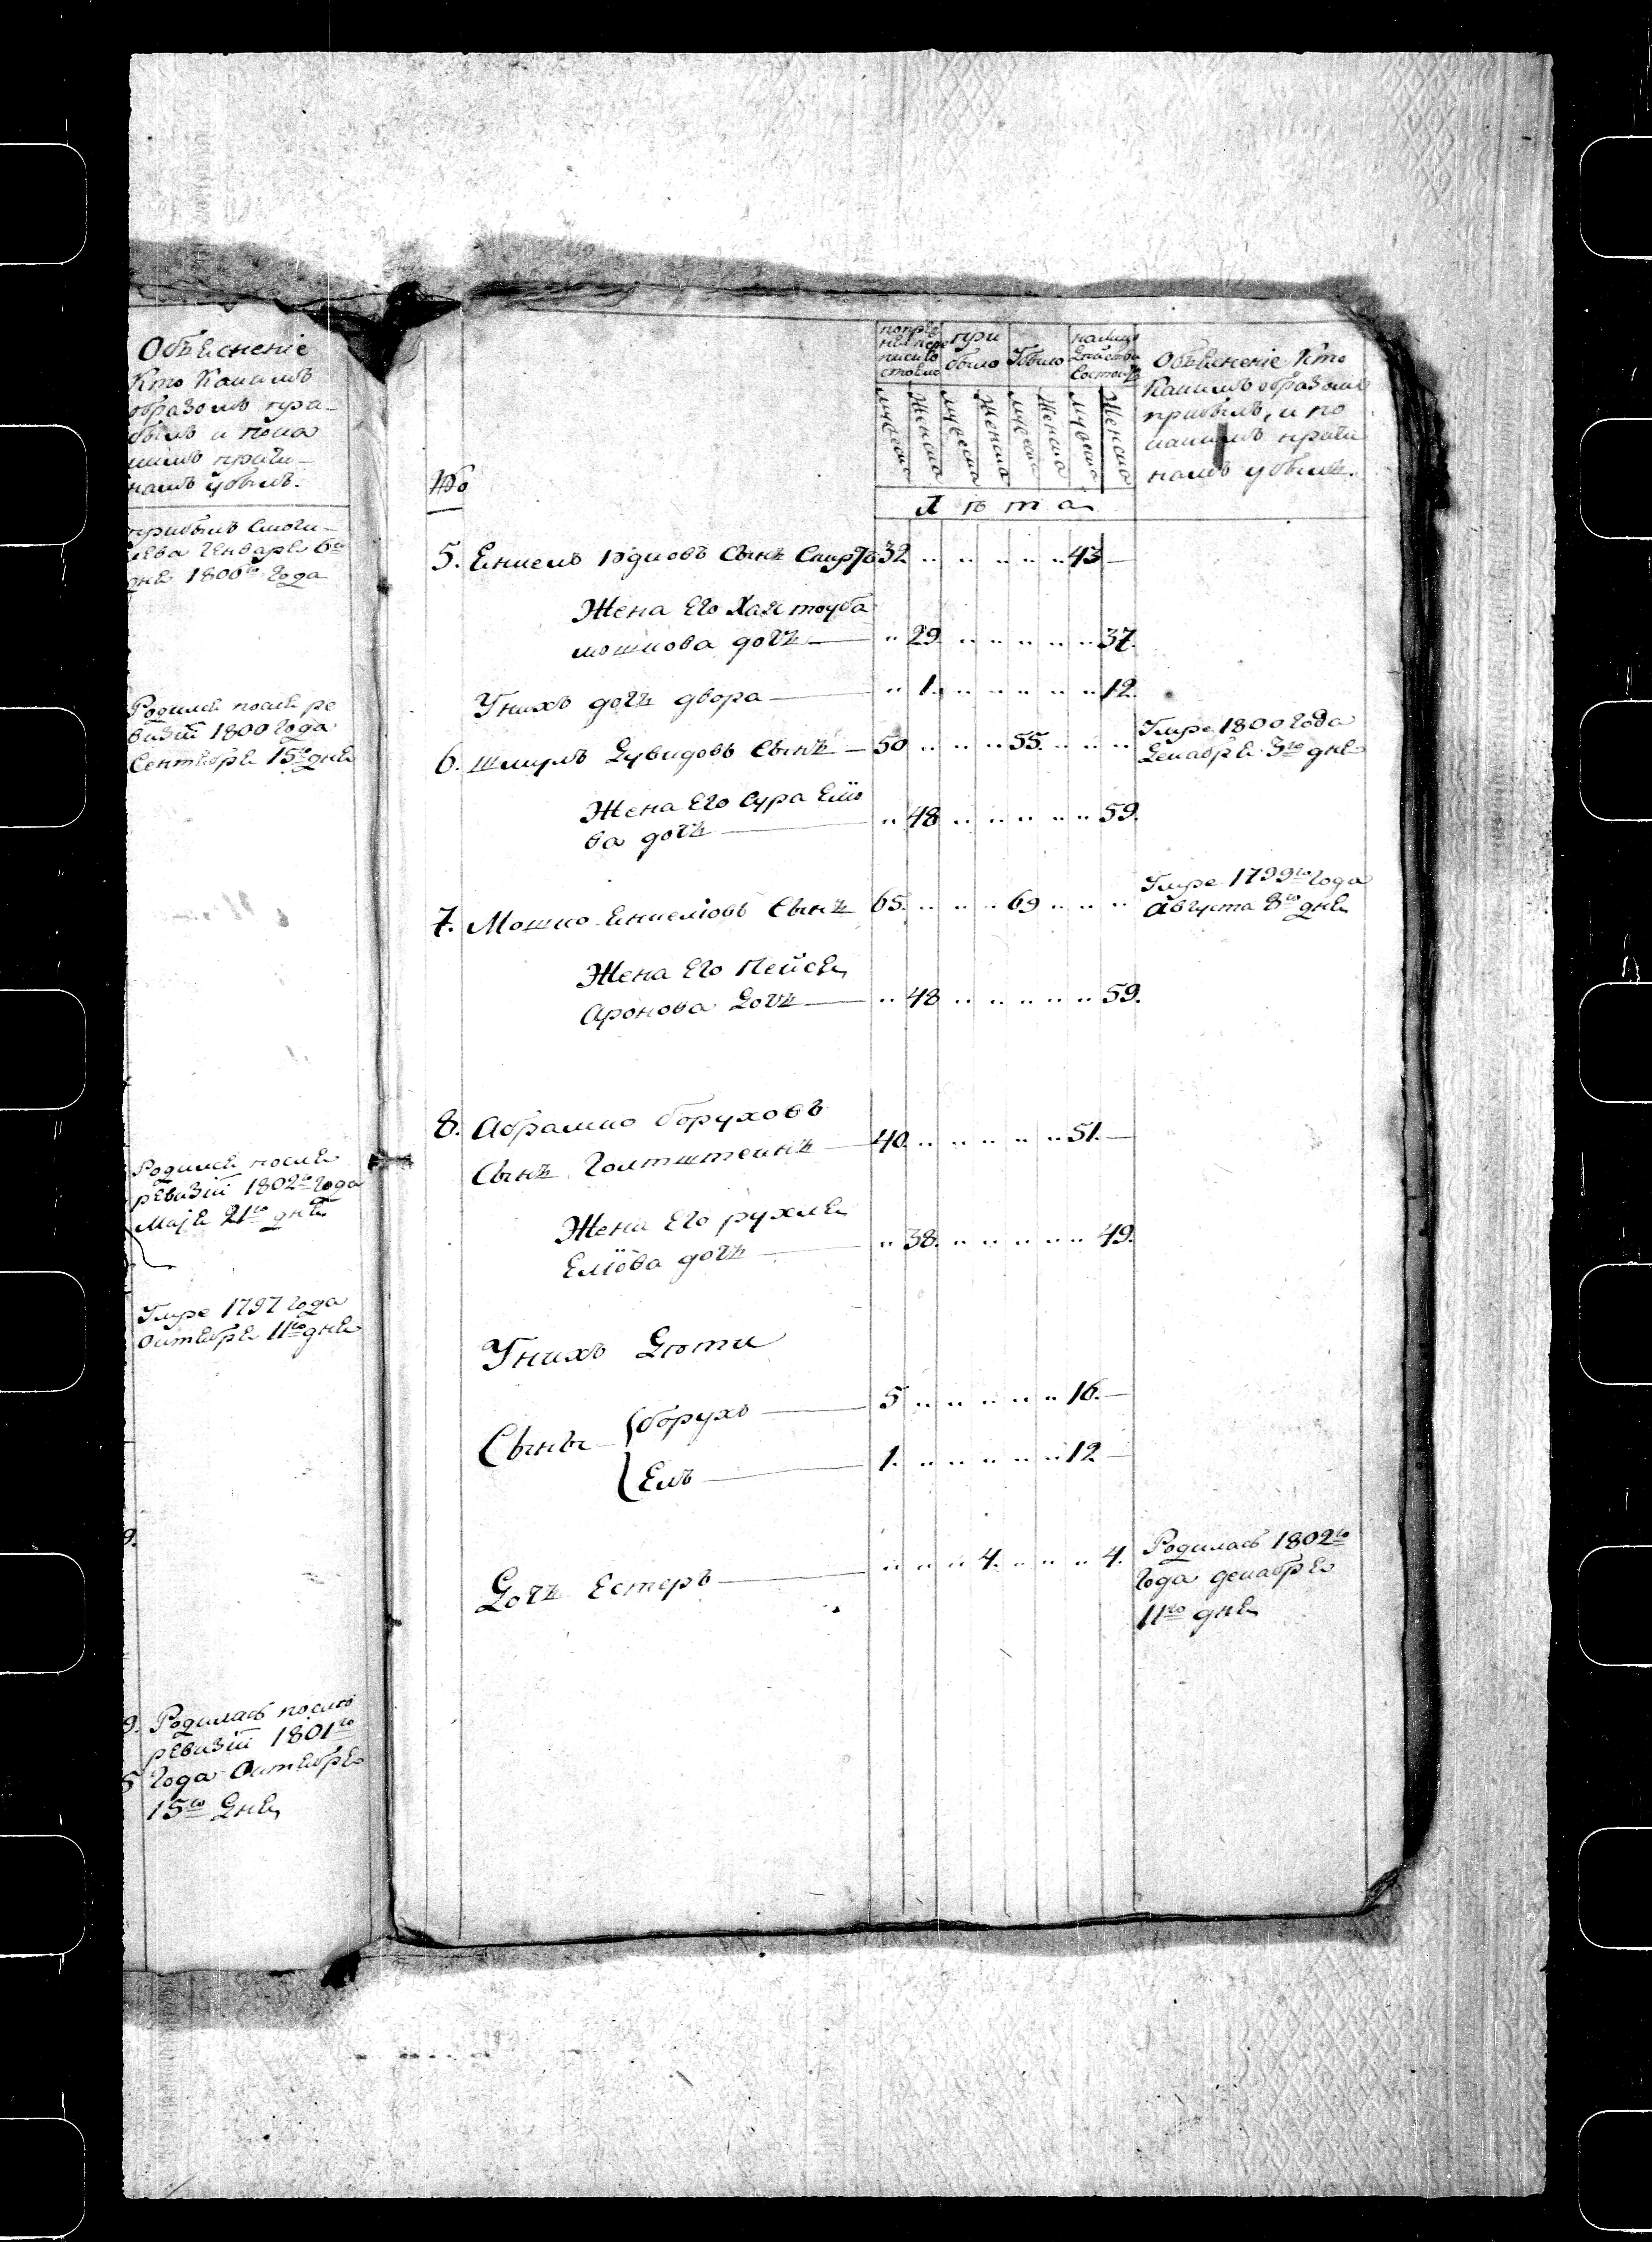 Объяснение
кто каким
образом при-
был и по ка
ким причи-
нам убыл.
прибыл
Генваря 6го
дня 1800го года
Родился после ре
визии 1800 года
Сентября 15го дня
Родился после
ревизии 1802го года
Маія 21го дня
Умре 1797 года
Октября 11го дня
9.
9. Родилась после
ревизіи 1801го
5 года Октября
15го Дня
№
по пре
ней пере
писи
состояло
при
было
Убыло
налицо
состоитъ
Объяснение кто
каким образом
прибылъ, и по
каким причи
намъ убылъ.
мужеска
женска
мужеска
женска
мужеска
женска
мужеска
женска
Лѣта
5. Сынъ 32 .. .. .. .. .. 43 —
Жена Его Хая тоуба
мошкова дочь — .. 29. .. .. .. .. .. 37.
У них дочь двора — .. 1. .. .. .. .. .. 12.
6. Шмуль Дувидовъ Сынъ — 50 .. .. .. 55. .. .. ..
Умре 1800 года
Декабря 3го дня
Жена Его Сура Еліо
ва дочь — .. 48 .. .. .. .. .. 59.
7. Мошко Сынъ 65. .. .. .. 69 .. .. ..
Умре 1799го года
Августа 8го дня
Жена Его Пейся
Аронова Дочь — .. 48 .. .. .. .. .. 59.
8. Абрамко Боруховъ
Сынъ Голтштеинъ — 40. .. .. .. .. .. 51. —
Жена Его рухля
Еліова дочь — .. 38. .. .. .. .. .. 49.
У нихъ Дѣти
Сыны { борухъ — 5 .. .. .. .. .. 16. —
{ Ель — 1. .. .. .. .. .. 12 —
Дочь Естеръ — .. .. .. 4. .. .. .. 4.
Родилась 1802го
года декабря
11го дня